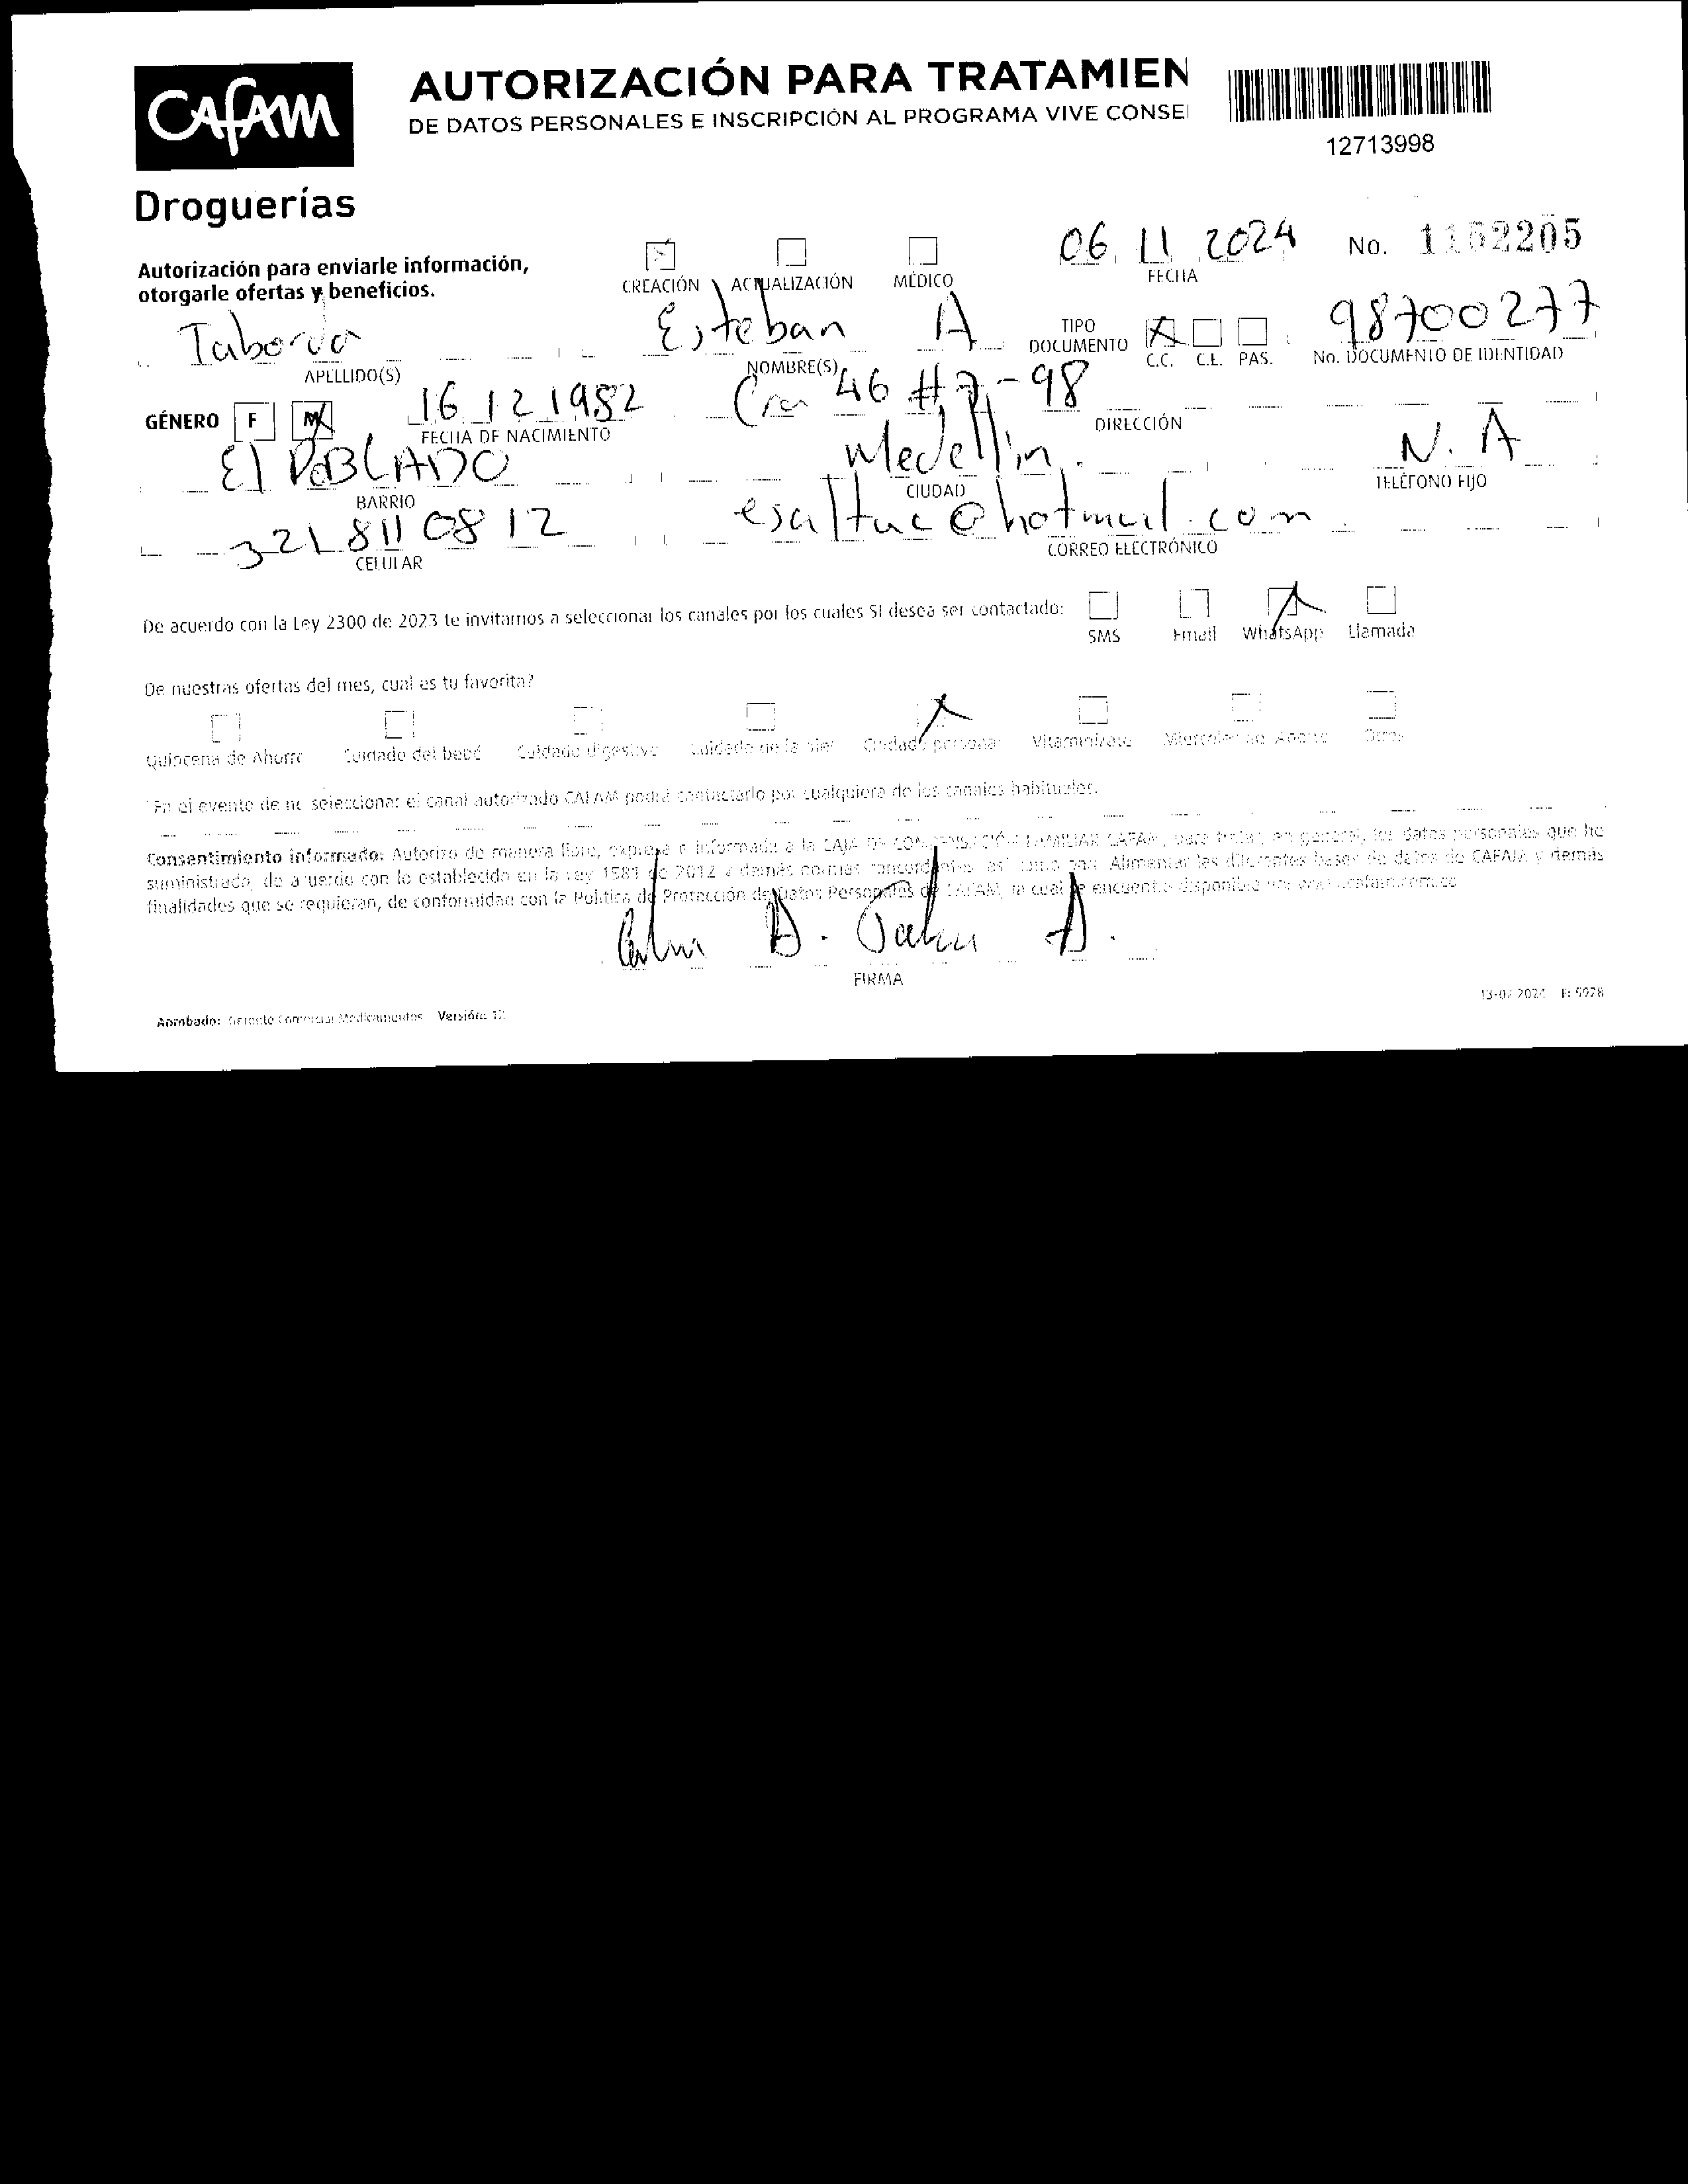 CAFAM
Droguerías
AUTORIZACIÓN PARA TRATAMIEN
DE DATOS PERSONALES E INSCRIPCIÓN AL PROGRAMA VIVE CONSE
12713998
Autorización para enviarle información,
otorgarle ofertas y beneficios.
CREACIÓN ACTUALIZACIÓN MÉDICO
06 11 2024
FECHA
No. 1152205
Taborda
APELLIDO(S)
Esteban A
NOMBRE(S)
TIPO
DOCUMENTO
C.C. C.E. PAS.
98700277
No. DOCUMENTO DE IDENTIDAD
GÉNERO F M
16 12 1982
FECHA DE NACIMIENTO
Cra 46 # 7-98
DIRECCIÓN
El POBLADO
BARRIO
Medellin
CIUDAD
N. A
TELÉFONO FIJO
321 811 08 12
CELULAR
@hotmail.com
CORREO ELECTRÓNICO
De acuerdo con la Ley 2300 de 2023 te invitamos a seleccionar los canales por los cuales SI desea ser contactado:
SMS Email WhatsApp Llamada
De nuestras ofertas del mes, cual es tu favorita?
Quincena de Ahorro Cuidado del bebé Cuidado digestivo Cuidado de la piel Cuidado personal Vitamínizate Miércoles de Ahorro Otros
*En el evento de no seleccionar el canal autorizado CAFAM podrá contactarlo por cualquiera de los canales habituales.
Consentimiento informado: Autorizo de manera libre, expresa e informada a la CAJA DE COMPENSACIÓN FAMILIAR CAFAM, para tratar, en general, los datos personales que he
suministrado, de acuerdo con lo establecido en la Ley 1581 de 2012 y demás normas concordantes, así como para: Alimentar las diferentes bases de datos de CAFAM y demás
finalidades que se requieran, de conformidad con la Política de Protección de Datos Personales de CAFAM, la cual se encuentra disponible en: www.cafam.com.co
FIRMA
Aprobado: Gerente Comercial Medicamentos Versión: 12
F: 5928